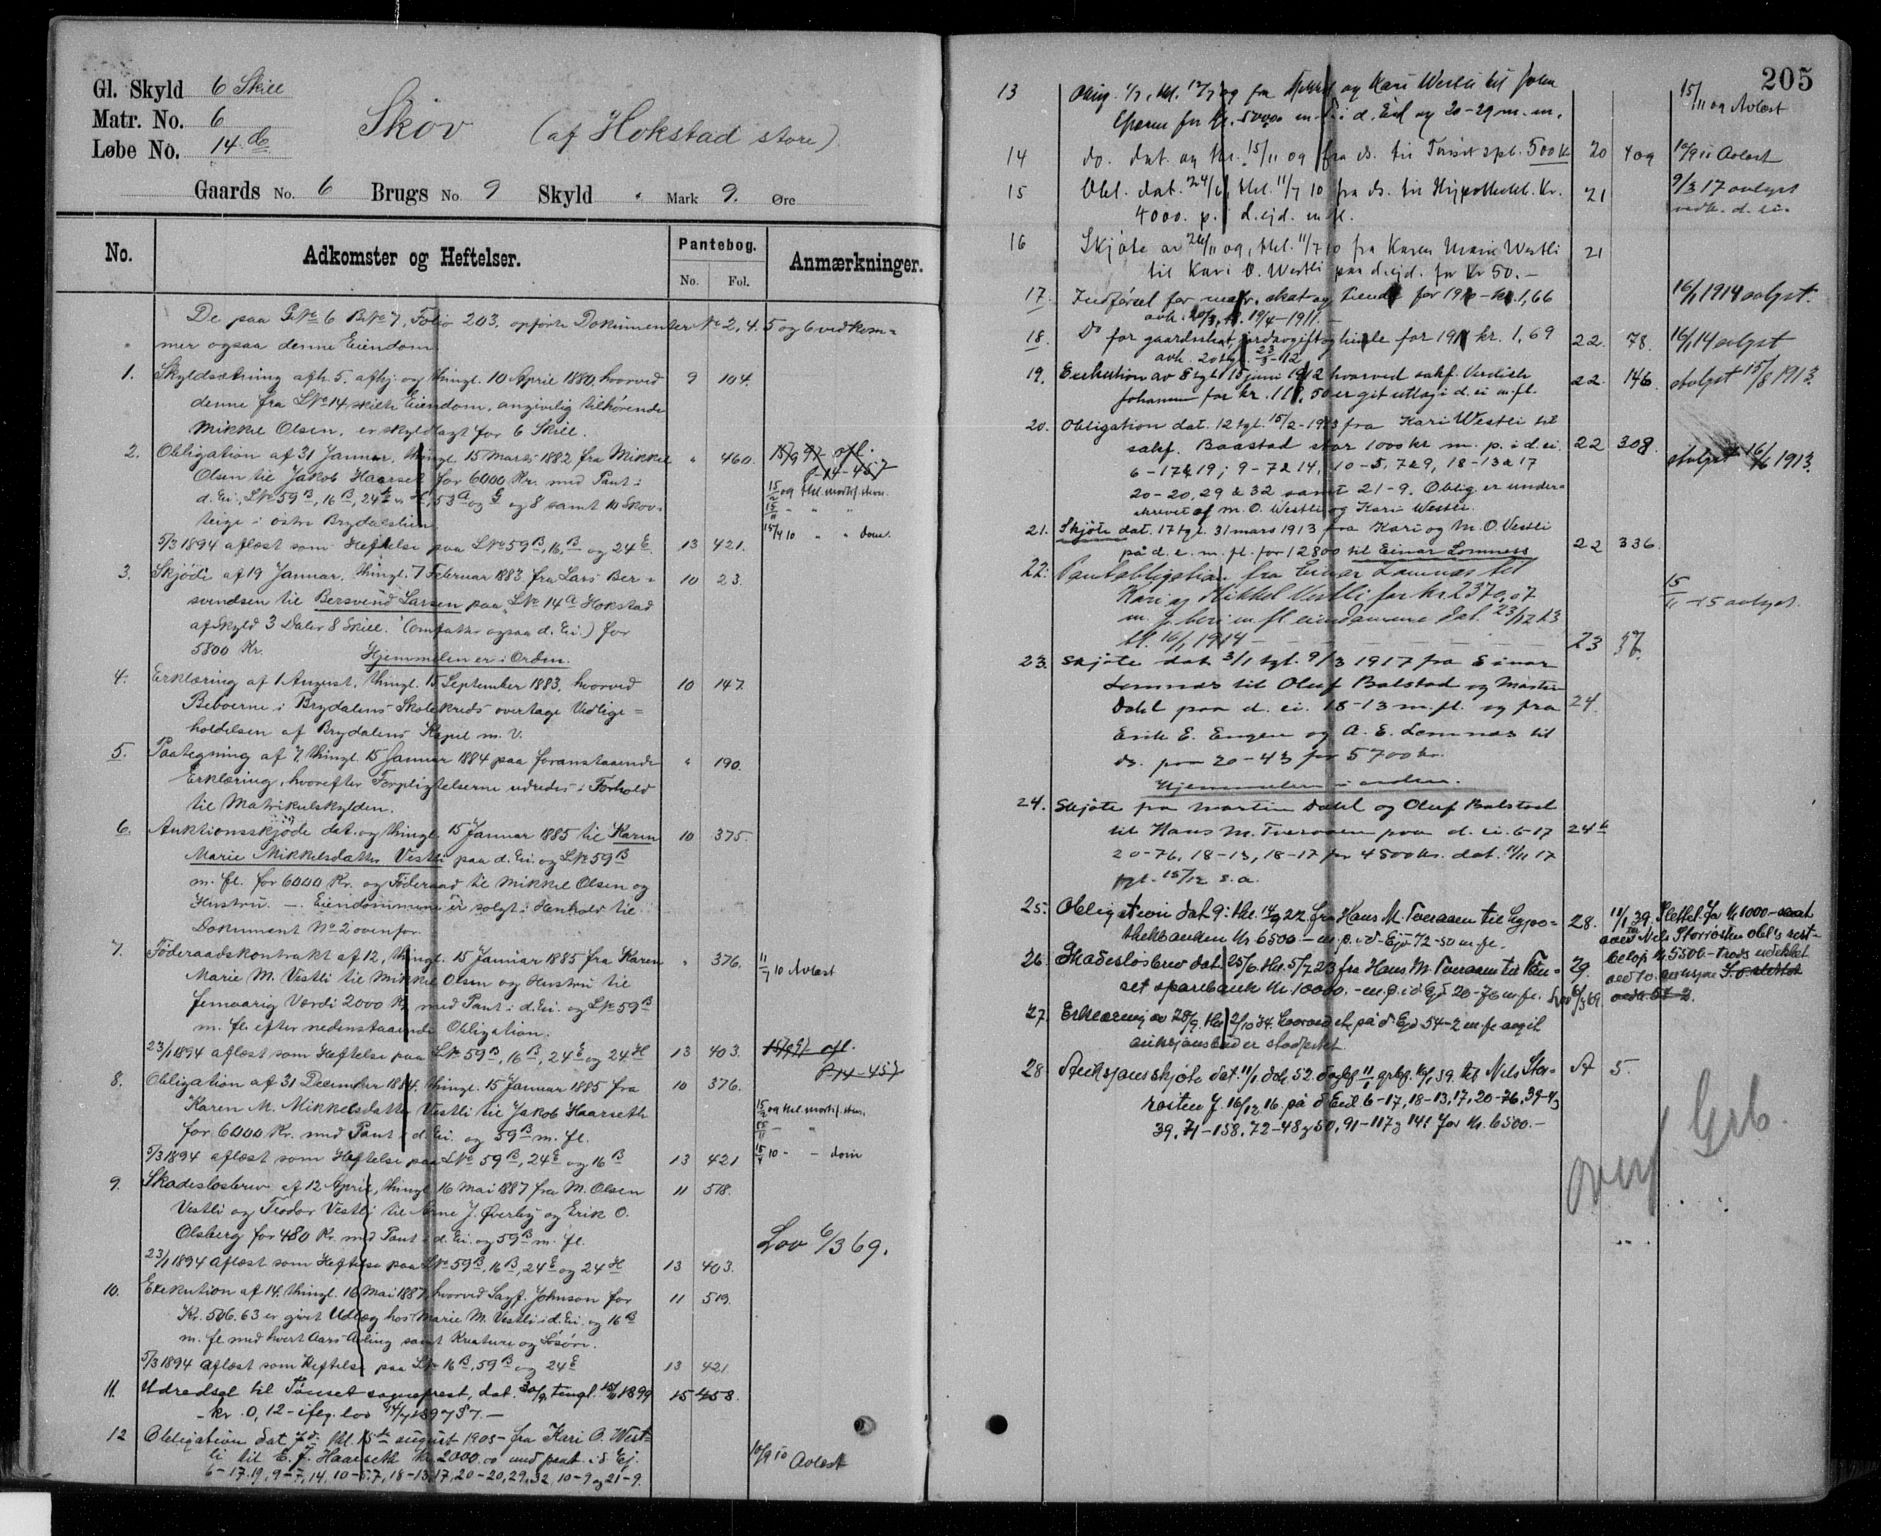 205
Gl. Skyld 6 Skill
Matr. No. 6
Løbe No. 14 de
Skov (af Hokstad store)
Gaards No. 6 Brugs No. 9 Skyld " Mark 9. Øre
No. Adkomster og Heftelser. Pantebog. Anmærkninger.
No. Fol.
De paa GNo 6 BNo 7, Folio 203, opførte Dokumenter No 2, 4, 5 og 6 vedkom=
mer ogsaa denne Eiendom
1. Skyldsætning afh. 5. afhj. og thingl. 10 April 1880, hvorved 9 104.
denne fra LNo 14 skilte Eiendom, angivelig tilhørende
Mikkel Olsen, er skyldlagt for 6 Skill.
2. Obligation af 31 Januar, thingl. 15 Marts 1882 fra Mikkel " 460. 15/9 97 afl.
Olsen til Jakob Haarset for 6000 Kr. med Pant i P14-457
d. Ei., LNo 59 B, 16 B, 24 53 a og 8 samt 10 Skov= 15/2 og thl. mortif. stevn.
teige i østre Brydalslien 15/11 " " "
5/3 1894 aflæst som Heftelse paa LNo 59 B, 16 B og 24 E. 13 421. 15/4 10 " " dom.
3. Skjøde af 19 Januar, thingl. 7 Februar 1883 fra Lars Ber= 10 23.
svendsen til Bersvend Larsen paa LNo 14 a Hokstad
af Skyld 3 Daler 8 Skill. (omfatter ogsaa d. Ei.) for
5800 Kr. Hjemmelen er i Orden.
4. Erklæring af 1 August, thingl. 15 September 1883, hvorved 10 147.
Beboerne i Brydalens Skolekreds overtage Vedlige=
holdelsen af Brydalens Kapel m. V.
5. Paategning af 7, thingl. 15 Januar 1884 paa foranstaaende " 190.
Erklæring, hvorefter Forpligtelserne udredes i Forhold
til Matrikulskylden.
6. Auktionsskjøde dat. og thingl. 15 Januar 1885 til Karen 10 375.
Marie Mikkelsdatter Vestli paa d. Ei. og LNo 59 B
m. fl. for 6000 Kr. og Føderaad til Mikkel Olsen og
Hustru. — Eiendommene er solgt i Henhold til
Dokument No 2 ovenfor.
7. Føderaadskontrakt af 12, thingl. 15 Januar 1885 fra Karen " 376. 11/7 10 Avlæst
Marie M. Vestli til Mikkel Olsen og Hustru til
femaarig Værdi 2000 Kr. med Pant i d. Ei. og LNo 59 B
m. fl. efter nedenstaaende Obligation.
23/1 1894 aflæst som Heftelse paa LNo 59 B, 16 B, 24 E og 24 H 13 403. 15/9 97 afl.
P14-457
8. Obligation af 31 December 1884, thingl. 15 Januar 1885 fra 10 376.
Karen M. Mikkelsdatter Vestli til Jakob Haarseth 15/2 og thl. mortif. stevn.
for 6000 Kr. med Pant i d. Ei. og 59 B m. fl. 15/11 — "
5/3 1894 aflæst som Heftelse paa LNo 59 B, 24 E og 16 B 13 421 15/4 10 - - dom
9. Skadesløsbrev af 12 April, thingl. 16 Mai 1887 fra M. Olsen 11 518.
Vestli og Teodor Vestli til Arne J. Øverby og Erik O.
Olsberg for 480 Kr. med Pant i d. Ei. og 59 B m. fl. Lov 6/3 69.
23/1 1894 aflæst som Heftelse paa LNo 59 B, 16 B, 24 E og 24 H 13 403.
10. Exekution af 14, thingl. 16 Mai 1887, hvorved Sagf. Johnson for 11 519.
Kr. 506.63 er givet Udlæg hos Marie M. Vestli i d. Ei. og 16 B
m. fl. med hvert Aars Avling samt Kreature og Løsøre.
5/3 1894 aflæst som Heftelse paa LNo 16 B, 59 B og 24 E 13 421.
11. Udredsel til Tønset sogneprest, dat. 30/9, tingl. 15/11 1899 15 458.
- kr. 0,12 - ifeg. lov 14/7 1897 §7. —
12 Obligation dat. 7de thl. 15de august 1905 - fra Kari O. West=
li til E. J. Haarseth kr. 2000.00 med pant i d Ej. 10/9 10 Avlæst
6-17.19, 9-7,14, 10-5.7, 18-13.17, 20-20, 29.32 10-9 og 21-9.
13 Oblig. 1/7, thl. 12/7 09 fra Mikkel og Kari Westli til John 15/11 09 Avlæst
for kr. 5000 m. P. i d. Eid og 20-29 m. m.
14 do. dat. og thl. 15/11 09 fra ds. til Tønset spb. 500 kr 20 409 10/9 11 Avlæst
15 Obl. dat. 24/6, thl. 11/7 10 fra ds. til Hypothekb. Kr. 21 9/3 17 avlyst
4000. p. i d. ejd. m fl. vedk. d. ei.
16 Skjøte av 26/11 09, thl. 11/7 10 fra Karen Marie Westli 21
til Kari O. Westli paa d. ejd. for Kr 50. —
17. Indførsel for matr. skat og tiende for 1910 - kr. 1,66 16/1 1914 avlyst.
avh. 20/3, tl. 19/4 - 1911. —
18. Do for gaardsskat, jordavgift og tiende for 1911 kr. 1,69 22. 78. 16/1 14 avlyst
avh. 20 tgl. 23/3 - 12
19. Exekution av 8 tgl. 15 juni 1912 hvorved sakf. 22. 146. Avlyst 15/8 1913.
Johannes for kr. 118,50 er git utlæg i d. ei m. fl.
20. Obligation dat. 12 tgl. 15/2 - 1913 fra Kari Westli til
sakf. Baastad stor 1000 kr m. p. i d. ei. 22 308 Avlyst 16/6 1913.
6-17 & 19; 9-7 & 14, 10-5, 7 & 9, 18-13 & 17
20-20, 29 & 32 samt 21-9. Oblig. er under=
skrevet af M. O. Westli og Kari Westli.
21. Skjøte dat. 17 tgl. 31 mars 1913 fra Kari og M. O. Vestli
på d. e. m. fl. for 12800 til Einar Lomness 22 336.
22. Pantobligation fra Einar Lomnæs til
Kari og Mikkel Vestli for kr 2370,07 15/11 - 15 avlyst.
m. p. bevi m. fl. eiendomme dat. 23/12 13
tl. 16/1 1914 — 23 57.
23. Skjøte dat. 3/1 tgl. 9/3 1917 fra Einar
Lomnæs til Oluf Balstad og Martin
Dahl paa d. ei. 18-13 m. fl. og fra 24.
Erik E. Engen og A. E. Lomnæs til
ds. paa 20-43 for 5700 kr.
Hjemmelen i orden.
24. Skjøte fra Martin Dahl og Oluf Balstad
til Hans M. Tveraaen paa d. ei. 6-17 24
20-76, 18-13, 18-17 for 4800 kr. dat. 11/11 17
tgl. 15/12 s. a.
25. Obligation dat 9. thl. 14/9 22 fra Hans M. Tveraaen til hypo= 28. 11/1 39. Slettet for kr 1000 -
thekbanken kr 6500 — m. p. i d Ejd 72-50 m. fl. Nils Storrøsten obl's rest-
26. Skadesløsbrev dat. 25/6. thl. 5/7 23 fra Hans M. Tveraaen til Tøn= 29. beløp kr 5500 - trods udekket
set sparebank kr. 10000. - m. p. i d Ejd 20-76 m. fl. Lov 6/3 69. ved to.
27 Erklæring av 28/9. thl 2/10 34. hvorved et på d Ejd 54-2 m. fl. avgit
auksjonsbud er stadfestet.
28 Auksjonsskjøte dat. 11/1 dok 52. dagbf. 11/1 grbf. 16/1 39. til Nils Stor= A 5.
røsten f. 16/12 16 på d Eid 6-17, 18-13, 17, 20-76, 39-43
39, 71-158, 72-48 og 50, 91-117 og 141 for kr. 6500. —
Overf Grb.